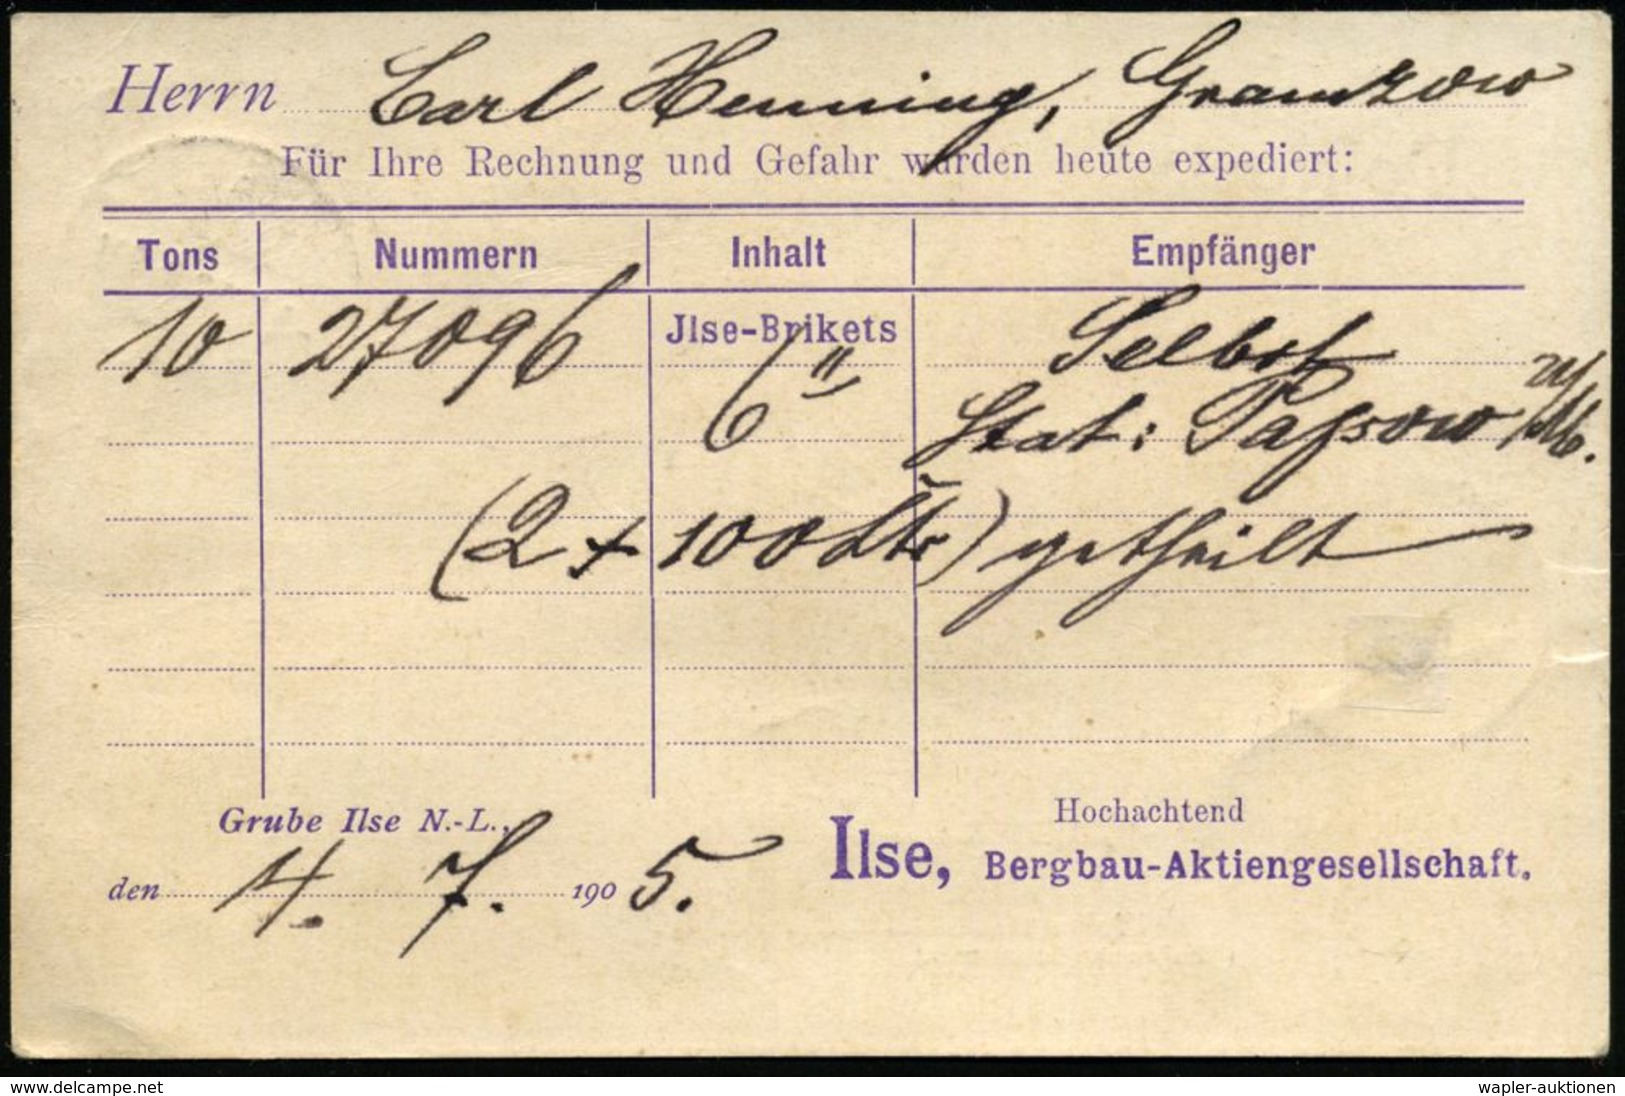 Herrn Carl Henning, Gramzow
Für Ihre Rechnung und Gefahr wurden heute expediert:
Tons Nummern Inhalt Empfänger
10 27096 Jlse-Brikets Selbst
6" Stat: Paßow U/M.
(2 + 100 Ltr) getheilt
Grube Ilse N.-L., Hochachtend
den 4. 7. 1905. Ilse, Bergbau-Aktiengesellschaft.
www.delcampe.net wapler-auktionen